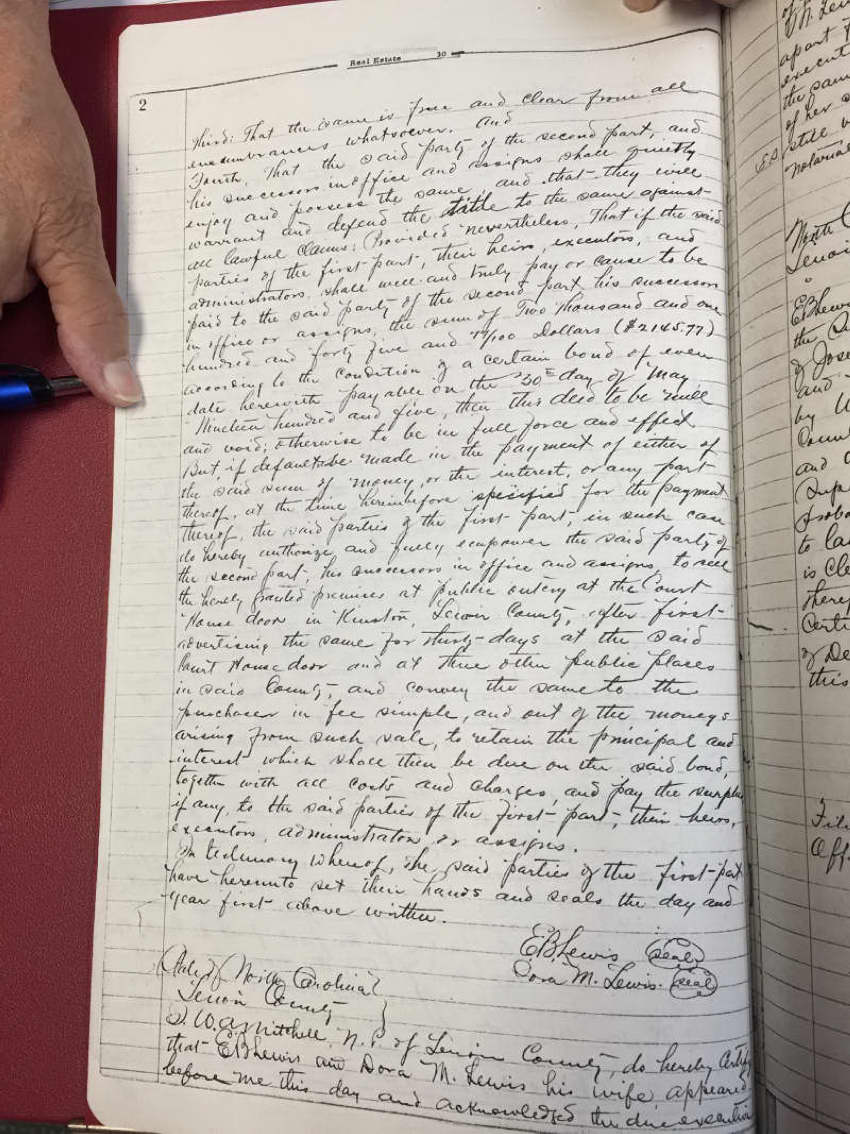 Real Estate 30
2
Third: That the same is free and clear from all
encumbrances whatsoever. and
Fourth, That the said party of the second part, and
his successors in office and assigns shall quietly
enjoy and possess the same, and that they will
warrant and defend the title to the same against
all lawful claims: Provided nevertheless, That if the said
parties of the first part, their heirs, executors, and
administrators, shall well and truly pay or cause to be
paid to the said party of the second part his successors
in office or assigns, the sum of Two Thousand and one
hundred and forty five and 77/100 Dollars ($2145.77)
according to the condition of a certain bond of even
date herewith payable on the 30th day of May
Nineteen hundred and five, then this deed to be null
and void; otherwise to be in full force and effect
But, if default be made in the payment of either of
the said sum of money, or the interest, or any part
thereof, at the time hereinbefore specified for the payment
thereof, the said parties of the first part, in such case
do hereby authorize and fully empower the said party of
the second part, his successors in office and assigns, to sell
the hereby granted premises at public outcry at the Court
House door in Kinston, Lenoir County, after first
advertising the same for thirty days at the said
Court House door and at three other public places
in said County, and convey the same to the
purchaser in fee simple, and out of the moneys
arising from such sale, to retain the principal and
interest which shall then be due on the said bond,
together with all costs and charges, and pay the surplus
if any, to the said parties of the first part, their heirs,
executors, administrators or assigns.
In testimony whereof, the said parties of the first part
have hereunto set their hands and seals the day and
year first above written.
E.B. Lewis (seal)
Dora M. Lewis. (seal)
State of North Carolina
Lenoir County
I. W.A. Mitchell, N.P. of Lenoir County, do hereby Certify
that E.B. Lewis and Dora M. Lewis his wife, appeared
before me this day and acknowledged the due execution
apart
execut
the sam
of her s
still
notarial
North C
Lenoir
E.B. Lewis
the C
of Jose
and
by
Coun
and
Supe
to la
is Cle
there
Certi
of De
this
File
Off